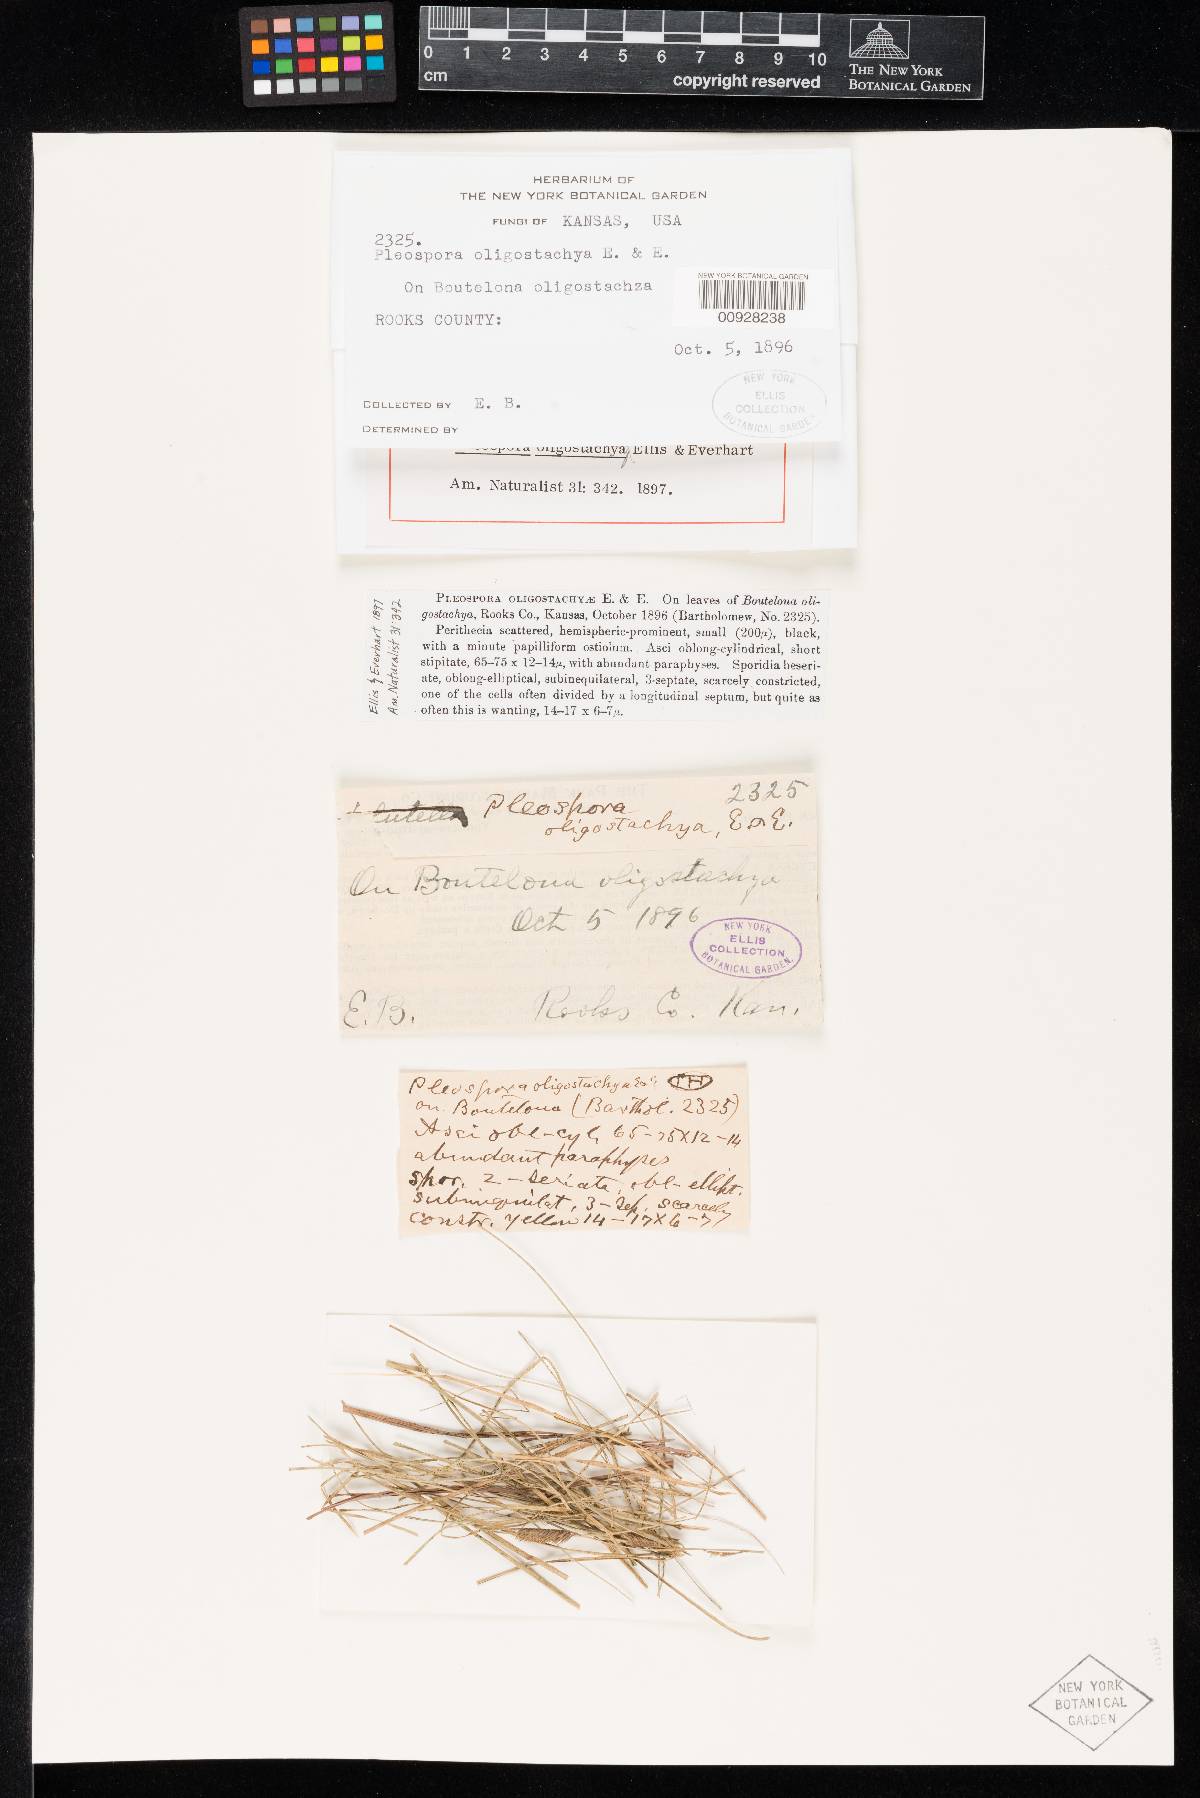 0 1 2 3 4 5 6 7 8 9 10
cm
copyright reserved
THE NEW YORK
BOTANICAL GARDEN
HERBARIUM OF
THE NEW YORK BOTANICAL GARDEN
FUNGI OF KANSAS, USA
2325.
Pleospora oligostachya E. & E.
On Boutelona oligostachza
NEW YORK BOTANICAL GARDEN
00928238
ROOKS COUNTY:
Oct. 5, 1896
NEW YORK
ELLIS
COLLECTION
BOTANICAL GARDEN
COLLECTED BY E. B.
DETERMINED BY
Pleospora oligostachya Ellis & Everhart
Am. Naturalist 31: 342. 1897.
Ellis & Everhart 1897
Am. Naturalist 31:342
PLEOSPORA OLIGOSTACHYÆ E. & E. On leaves of Bouteloua oli-
gostachya, Rooks Co., Kansas, October 1896 (Bartholomew, No. 2325).
Perithecia scattered, hemispheric-prominent, small (200µ), black,
with a minute papilliform ostiolum. Asci oblong-cylindrical, short
stipitate, 65–75 x 12–14µ, with abundant paraphyses. Sporidia beseri-
ate, oblong-elliptical, subinequilateral, 3-septate, scarcely constricted,
one of the cells often divided by a longitudinal septum, but quite as
often this is wanting, 14–17 x 6–7µ.
2325
Pleospora
oligostachya, E & E.
On Boutelona oligostachya
Oct 5 1896
NEW YORK
ELLIS
COLLECTION
BOTANICAL GARDEN.
E. B. Rooks Co. Kan.
Pleospora oligostachya E&E
on Boutelona (Barthol. 2325)
Asci obl-cyl, 65-75X12-14
abundant paraphyses
spor. 2-seriate, obl-ellipt.
subinequilat, 3-sep, scarcely
constr. yellow 14-17X6-7
NEW YORK
BOTANICAL
GARDEN